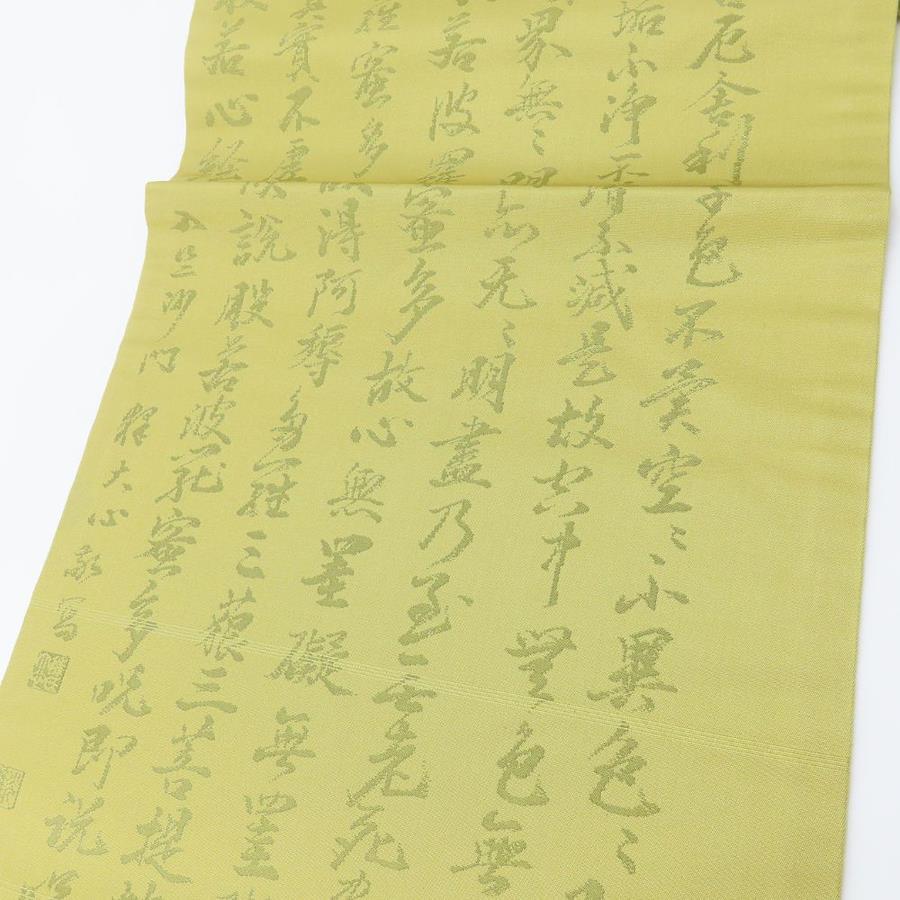 厄舍利子色不異空〻不異色〻
垢不浄增不減是故空中無色無
界無〻明亦无〻明盡乃至無老死
若波羅蜜多故心無罣礙無罣
羅蜜多故得阿耨多羅三藐三菩提
實不虛故說般若波羅蜜多呪即說
般若心經
入竺沙門 釋大心敬寫